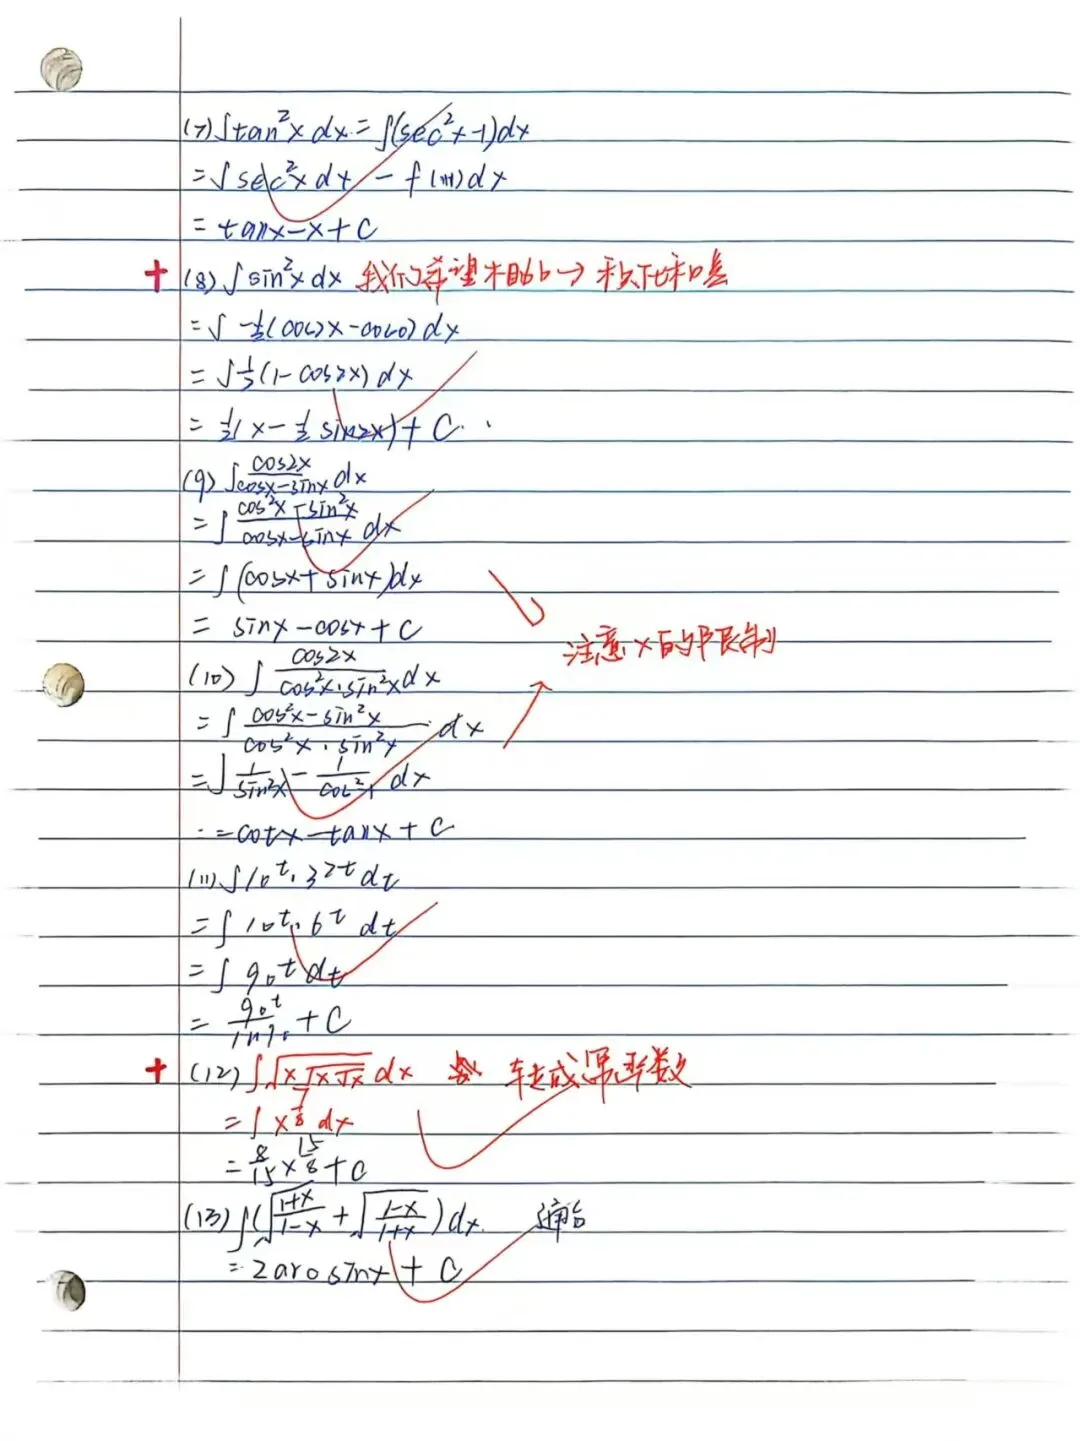 (7) ∫tan²x dx = ∫(sec²x-1)dx
= ∫sec²x dx - ∫(1)dx
= tanx-x+C
+ (8) ∫sin²x dx 我们希望相加→积化和差
= ∫-½(cos2x-cos0)dx
= ∫½(1-cos2x)dx
= ½(x-½sin2x)+C.
(9) ∫cos2x/(cosx-sinx) dx
= ∫(cos²x-sin²x)/(cosx-sinx) dx
= ∫(cosx+sinx)dx
= sinx-cosx+C
注意x的限制
(10) ∫cos2x/(cos²x·sin²x) dx
= ∫(cos²x-sin²x)/(cos²x·sin²x) dx
= ∫1/sin²x - 1/cos²x dx
= cotx-tanx+C
(11) ∫10^t·3^2t dt
= ∫10^t·6^t dt
= ∫90^t dt
= 90^t/ln90 + C
+ (12) ∫√(x√(x√x)) dx 转成幂函数
= ∫x^(7/8) dx
= 8/15 x^(15/8) + C
(13) ∫(√((1+x)/(1-x)) + √((1-x)/(1+x)))dx 通分
= 2arcsinx + C